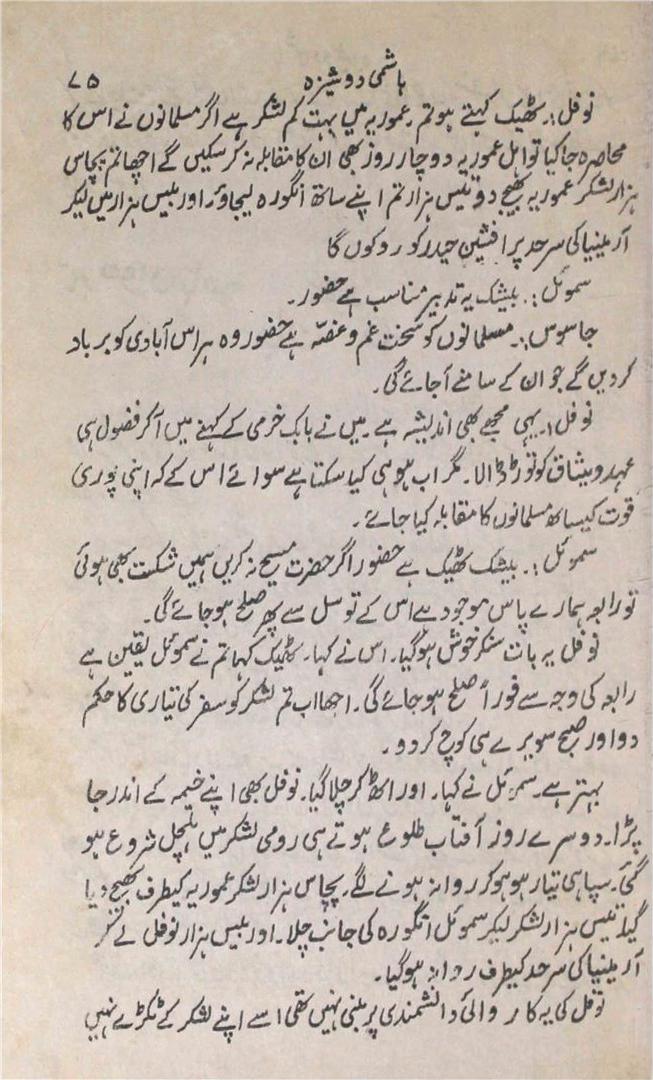 ہاشمی دوشیزہ ۷۵
نوفل:۔ ٹھیک کہتے ہو تم۔ عموریہ میں بہت کم لشکر ہے اگر مسلمانوں نے اس کا
محاصرہ جا کیا تو اہل عموریہ دو چار روز بھی ان کا مقابلہ نہ کر سکیں گے اچھا تم پچاس
ہزار لشکر عموریہ بھیج دو تیس ہزار تم اپنے ساتھ انگورہ لیجاؤ۔ اور بیس ہزار میں لیکر
آرمینیا کی سرحد پر افشین حیدر کو روکوں گا
سموئل:۔ بیشک یہ تدبیر مناسب ہے حضور۔
جاسوس:۔ مسلمانوں کو سخت غم و غصہ ہے حضور وہ ہر اس آبادی کو برباد
کر دیں گے جو ان کے سامنے آجائے گی۔
نوفل:۔ یہی مجھے بھی اندیشہ ہے۔ میں نے بابک خرمی کے کہنے میں آکر فضول ہی
عہد و میثاق کو توڑ ڈالا۔ مگر اب ہو ہی کیا سکتا ہے سوائے اس کے کہ اپنی پوری
قوت کیساتھ مسلمانوں کا مقابلہ کیا جائے۔
سموئل:۔ بیشک ٹھیک ہے حضور اگر حضرت مسیح نہ کریں ہمیں شکست بھی ہوئی
تو رابعہ ہمارے پاس موجود ہے اس کے توسل سے پھر صلح ہو جائے گی۔
نوفل یہ بات سنکر خوش ہو گیا۔ اس نے کہا۔ ٹھیک کہا تم نے سموئل یقین ہے
رابعہ کی وجہ سے فوراً صلح ہو جائے گی۔ اچھا اب تم لشکر کو سفر کی تیاری کا حکم
دو اور صبح سویرے ہی کوچ کر دو۔
بہتر ہے۔ سموئل نے کہا۔ اور اٹھ کر چلا گیا۔ نوفل بھی اپنے خیمہ کے اندر جا
پڑا۔ دوسرے روز آفتاب طلوع ہوتے ہی رومی لشکر میں ہلچل شروع ہو
گئی۔ سپاہی تیار ہو ہو کر روانہ ہونے لگے۔ پچاس ہزار لشکر عموریہ کیطرف بھیج دیا
گیا۔ تیس ہزار لشکر لیکر سموئل انگورہ کی جانب چلا۔ اور بیس ہزار نوفل لے کر
آرمینیا کی سرحد کیطرف روانہ ہو گیا۔
نوفل کی یہ کارروائی دانشمندی پر مبنی نہیں تھی اسے اپنے لشکر کے ٹکڑے نہیں